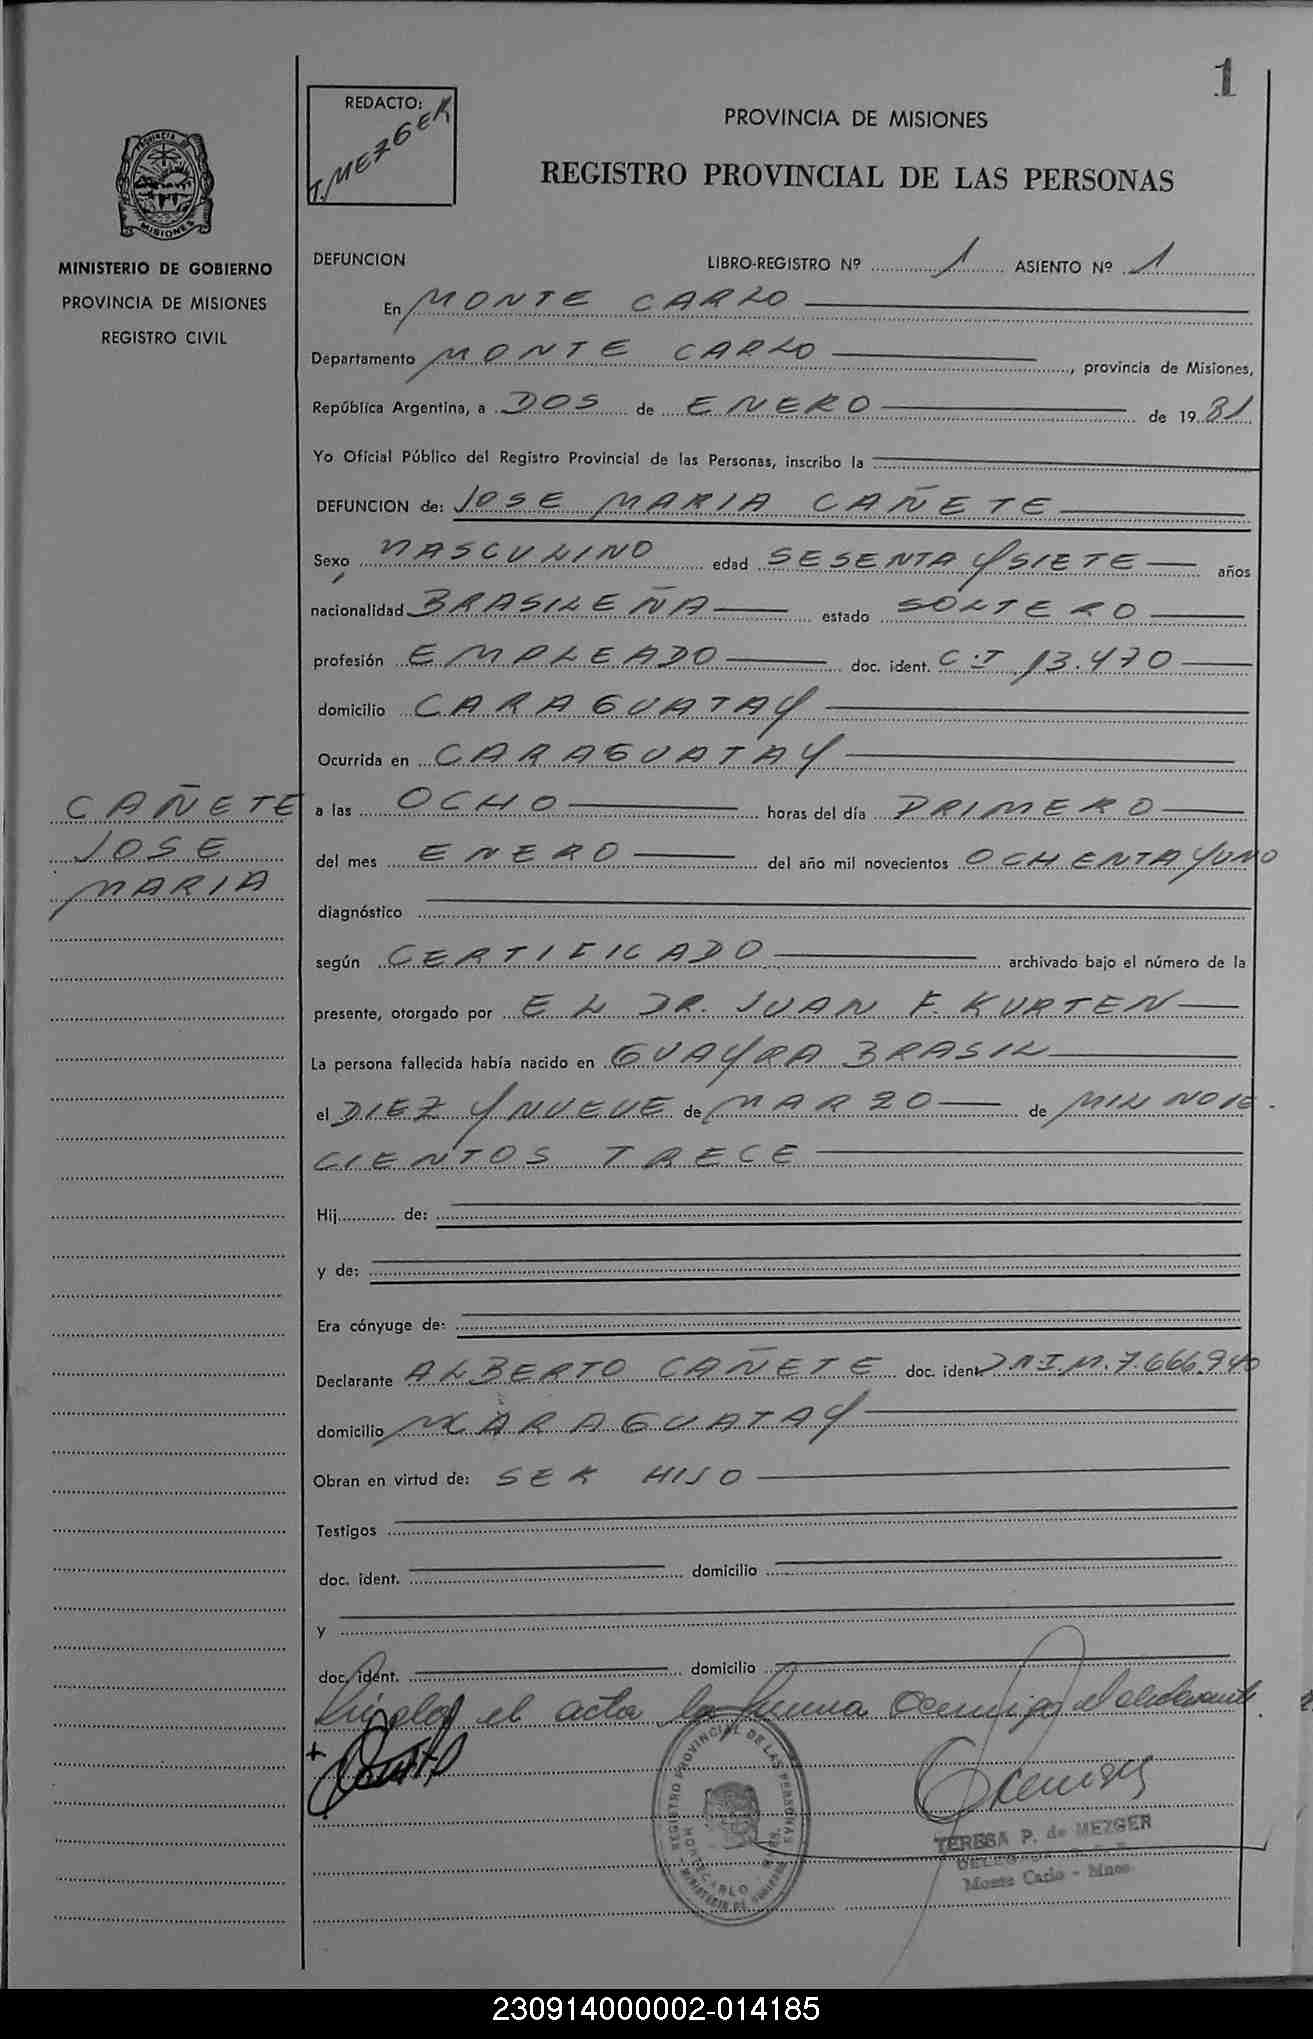 1
REDACTO:
T. MEZGER
PROVINCIA DE MISIONES
REGISTRO PROVINCIAL DE LAS PERSONAS
MINISTERIO DE GOBIERNO
PROVINCIA DE MISIONES
REGISTRO CIVIL
DEFUNCION LIBRO-REGISTRO Nº 1 ASIENTO Nº 1
En MONTE CARLO
Departamento MONTE CARLO, provincia de Misiones,
República Argentina, a DOS de ENERO de 1981
Yo Oficial Público del Registro Provincial de las Personas, inscribo la
DEFUNCION de: JOSE MARIA CAÑETE
Sexo MASCULINO edad SESENTA Y SIETE años
nacionalidad BRASILEÑA estado SOLTERO
profesión EMPLEADO doc. ident. C.I 13.470
domicilio CARAGUATAY
Ocurrida en CARAGUATAY
CAÑETE
JOSE
MARIA
a las OCHO horas del día PRIMERO
del mes ENERO del año mil novecientos OCHENTA Y UNO
diagnóstico
según CERTIFICADO archivado bajo el número de la
presente, otorgado por EL DR. JUAN F. KURTEN
La persona fallecida había nacido en GUAYRA BRASIL
el DIEZ Y NUEVE de MARZO de MIL NOVE
CIENTOS TRECE
Hij de:
y de:
Era cónyuge de:
Declarante ALBERTO CAÑETE doc. ident. D.N.I.M. 7.666.940
domicilio CARAGUATAY
Obran en virtud de: SER HIJO
Testigos
doc. ident. domicilio
y
doc. ident. domicilio
el acta la firma el declarante.
REGISTRO PROVINCIAL DE LAS PERSONAS
MONTE CARLO
MINISTERIO DE GOBIERNO
TERESA P. de MEZGER
Monte Carlo - Mnes.
230914000002-014185